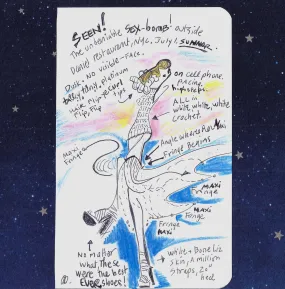 SEEN!
The unforgivable 'sex-bombs' outside
Daniel restaurant, NYC, July 1. SUMMER
Dusk. No visible-face.
long platinum
on cell phone,
pacing,
high steps.
ALL in
white, white, white
crochet.
Angle where the Maxi
Fringe Begins
MAXI
Fringe
MAXI
Fringe
MAXI
Fringe
Fringe
MAXI
No matter
what, These
were the best
EVER shoes!
white + Bone Liz
Skin, A million
Straps, 20"
heel